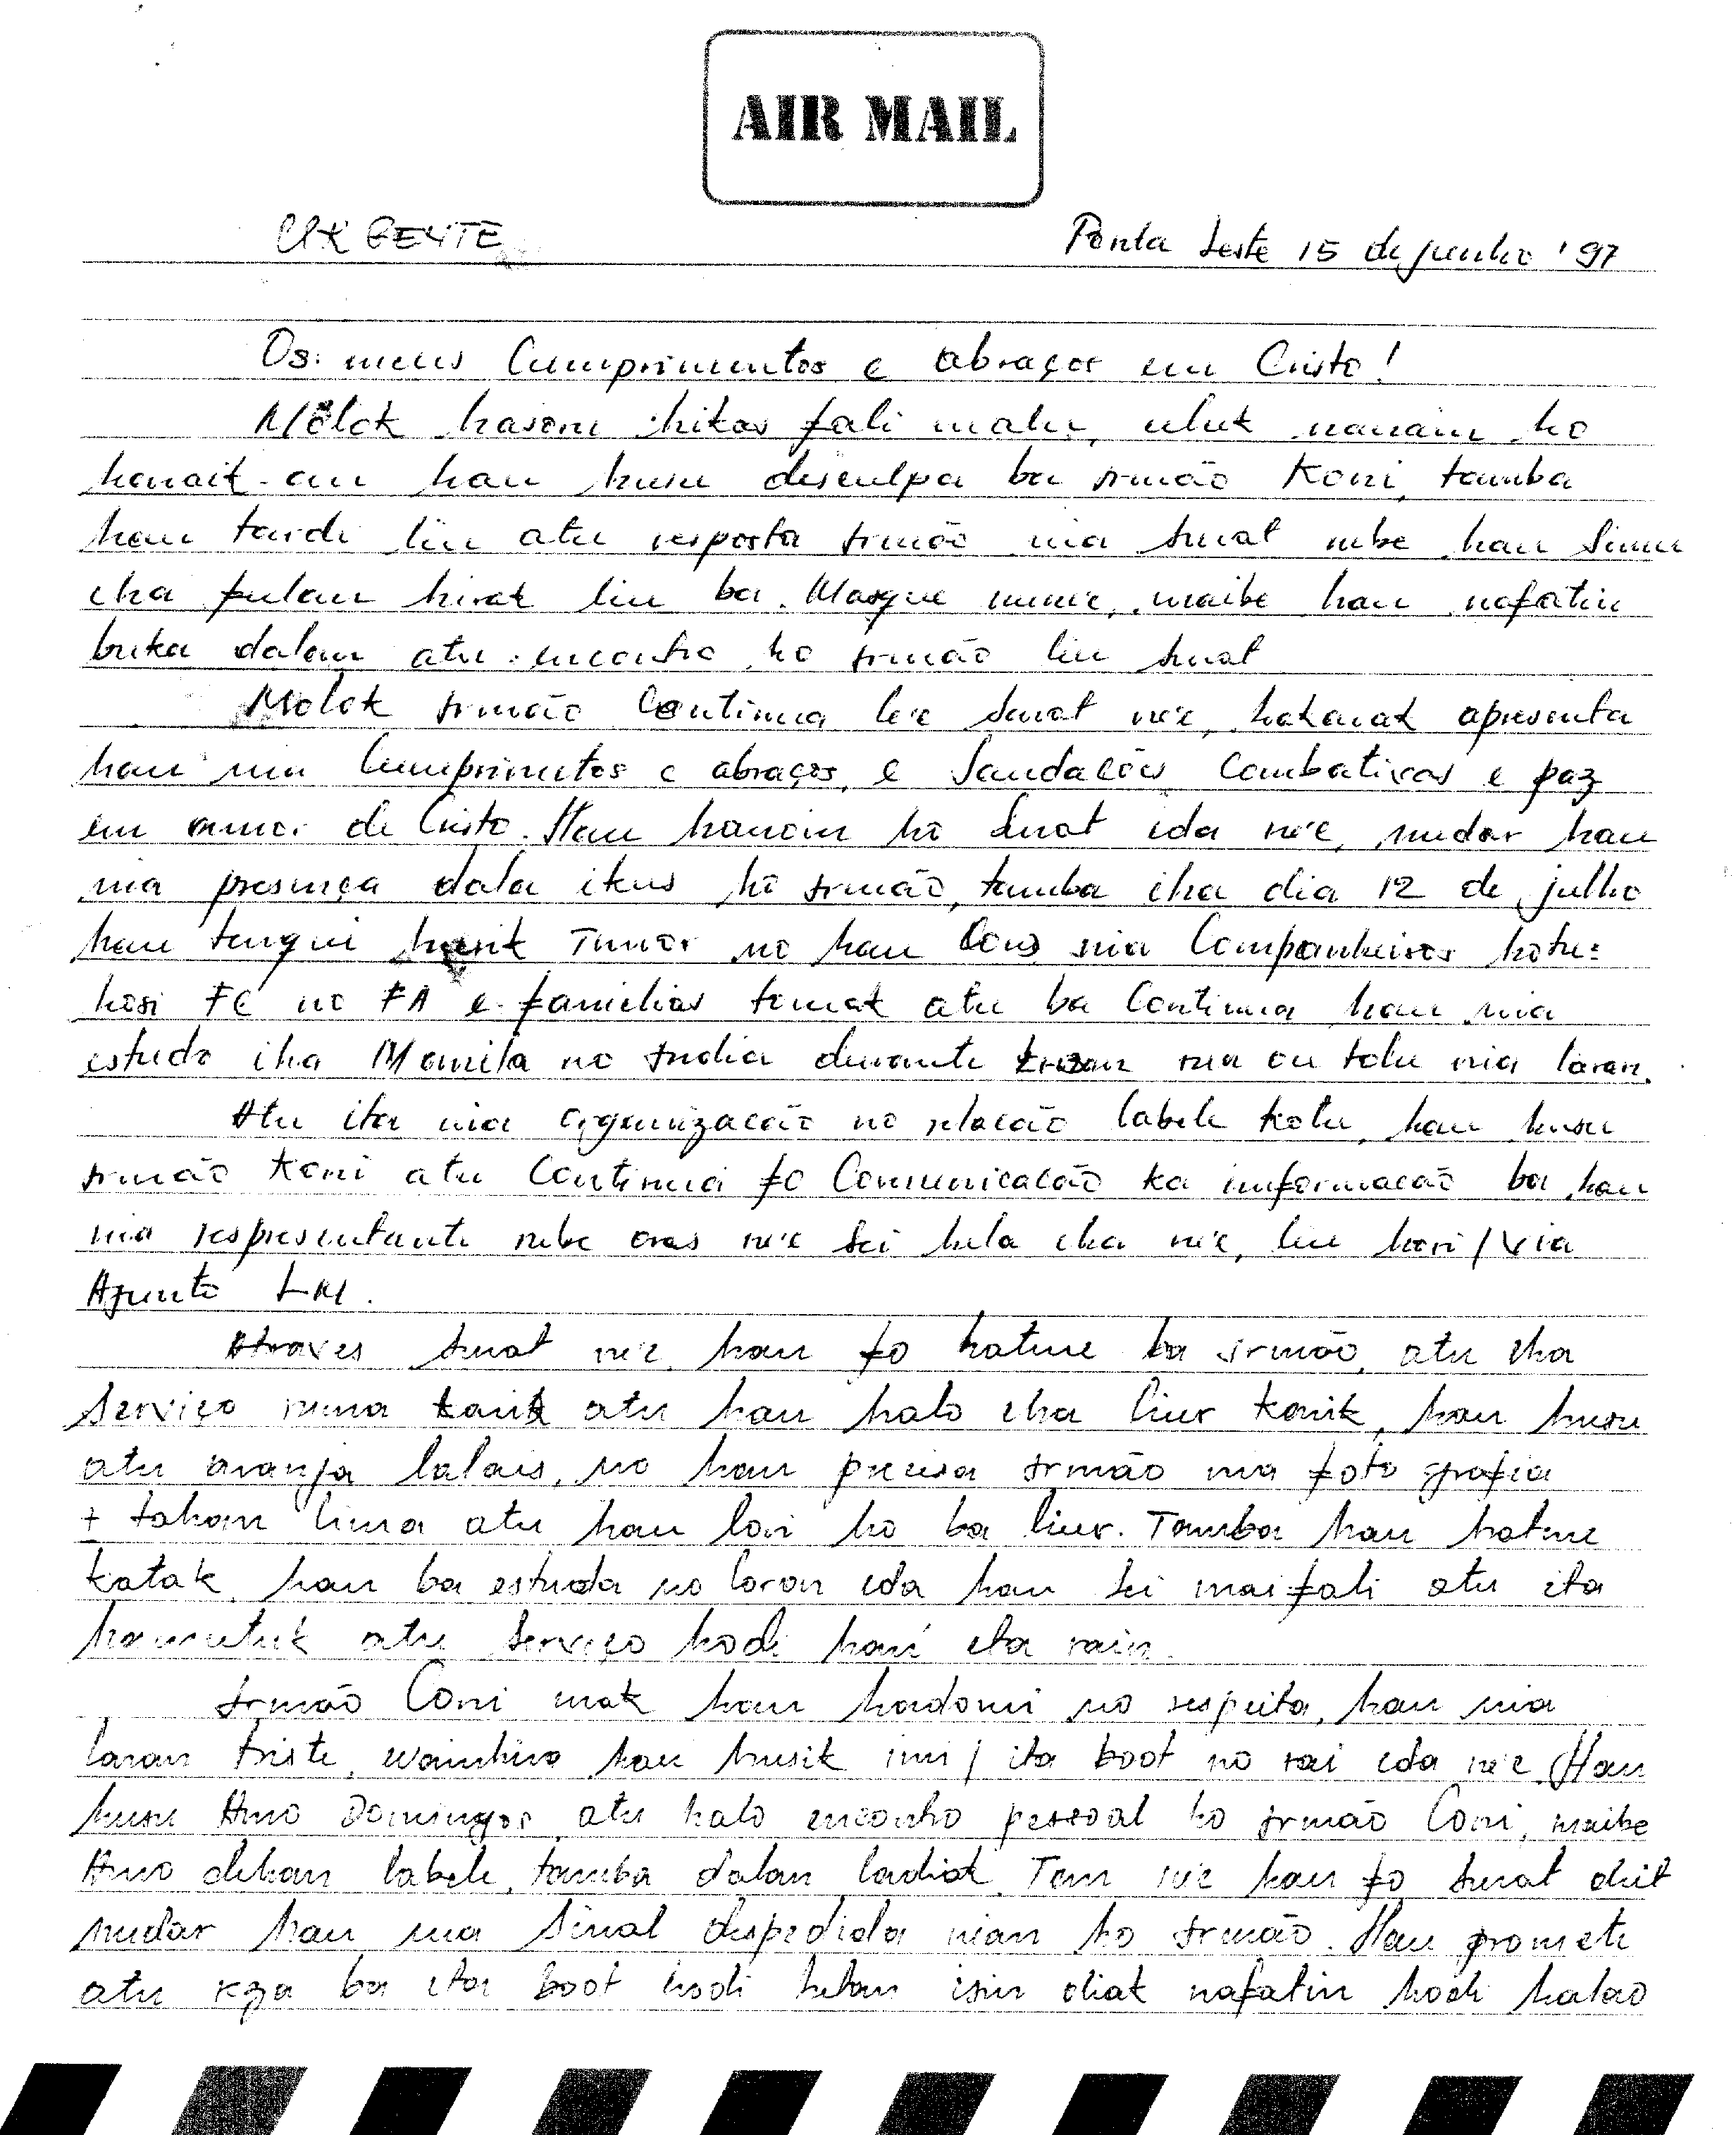 AIR MAIL
URGENTE
Ponta Leste 15 de junho '97
Os meus Cumprimentos e abraços em Cristo!
Molok hasoru hikas fali malu, uluk nanain ho
hanait-an hau husu desculpa ba Irmão Koni, tamba
hau tardi liu atu resposta Irmão nia surat nebe hau Simu
iha fulan hirak liu ba. Masque nune'e, maibe hau nafatin
buka dalan atu encontro ho Irmão liu surat
Molok Irmão Continua le'e surat ne'e, hakarak apresenta
hau nia Cumprimetos e abraços, e Saudacões Combativas e paz
em amor de Cristo. Hau hanoin ho Surat ida ne'e, nudar hau
nia presença dala ikus ho Irmão, tamba iha dia 12 de julho
hau tenqui husik Timor no hau nia Companheiros hotu=
hosi FC no FA e familias tomak atu ba Continua hau nia
estudo iha Manila no India durante rua ou tolu nia laran.
Atu ita nia organizacão no relacão labele kotu, hau husu
Irmão Koni atu Continua fo Comunicacão ka imformacão ba hau
nia respresentante nebe oras ne'e sei hela iha ne'e, liu hosi/via
Ajunto LM.
Atraves surat ne'e hau fo hatene ba Irmão, atu iha
Serviço ruma karik atu hau halo iha liur karik, hau husu
atu aranja lalais, no hau precisa Irmão nia foto grafia
+ tahan lima atu hau lori ho ba liur. Tamba hau hatene
katak hau ba estuda no loron ida hau sei mai fali atu ita
hamutuk atu serviço hodi hari ita rain.
Irmão Coni mak hau hadomi no respeita, hau nia
laran triste, wainhira hau husik imi/ita boot no rai ida ne'e. Hau
husu Amo Domingos atu halo encontro pessoal ho Irmão Coni, maibe
Amo dehan labele, tamba dalan ladiak. Tan ne'e hau fo Surat deit
nudar hau nia Sinal despedida nian ho Irmão. Hau promete
atu reza ba ita boot hodi hetan isin diak nafatin hodi halao